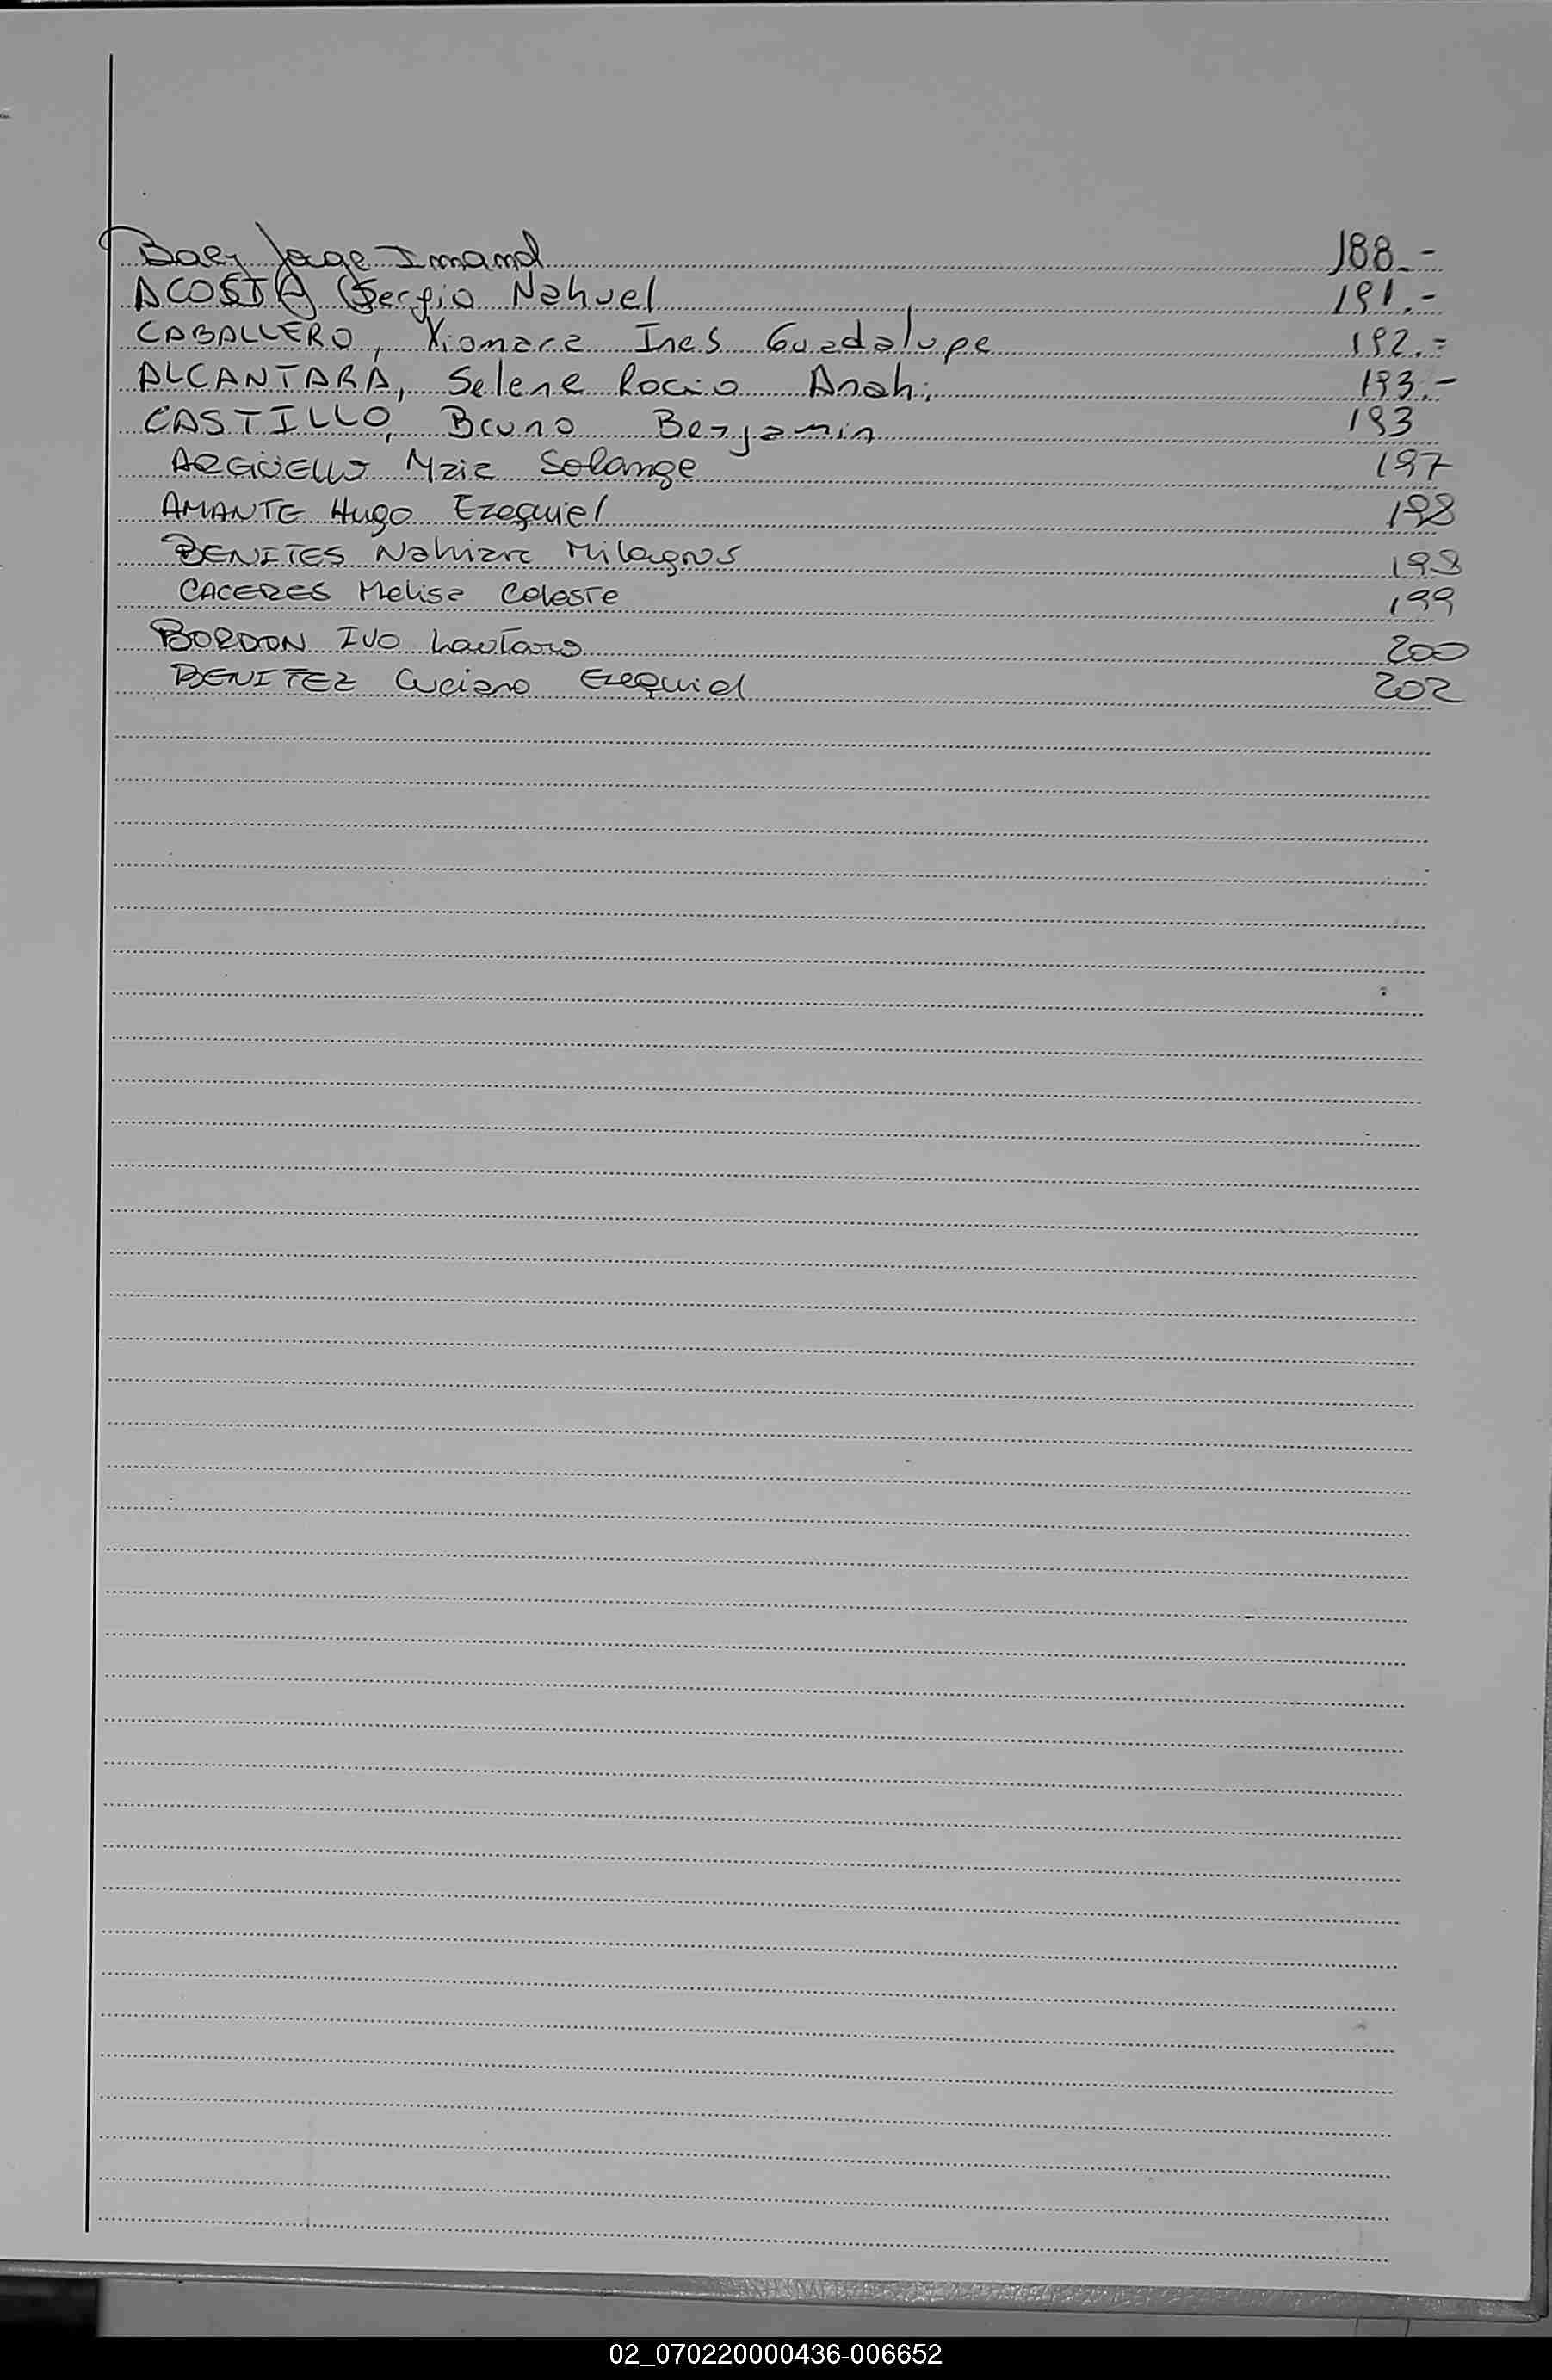 Baez Jorge Imanol 188.-
ACOSTA Sergio Nahuel 191.-
CABALLERO, Xiomara Ines Guadalupe 192.-
ALCANTARA, Selene Rocio Anahi 193.-
CASTILLO, Bruno Benjamin 193
ARGÜELLO Maia Solange 197
AMANTE Hugo Ezequiel 198
BENITES Nahiara Milagros 198
CACERES Melisa Celeste 199
BORDON IVO Lautaro 200
BENITEZ Luciano Ezequiel 202
02_070220000436-006652